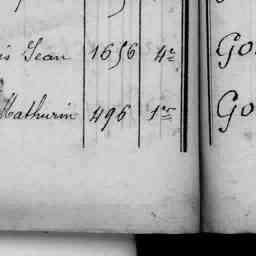 is Jean 1656 4e Go
Mathurin 496 1re Go